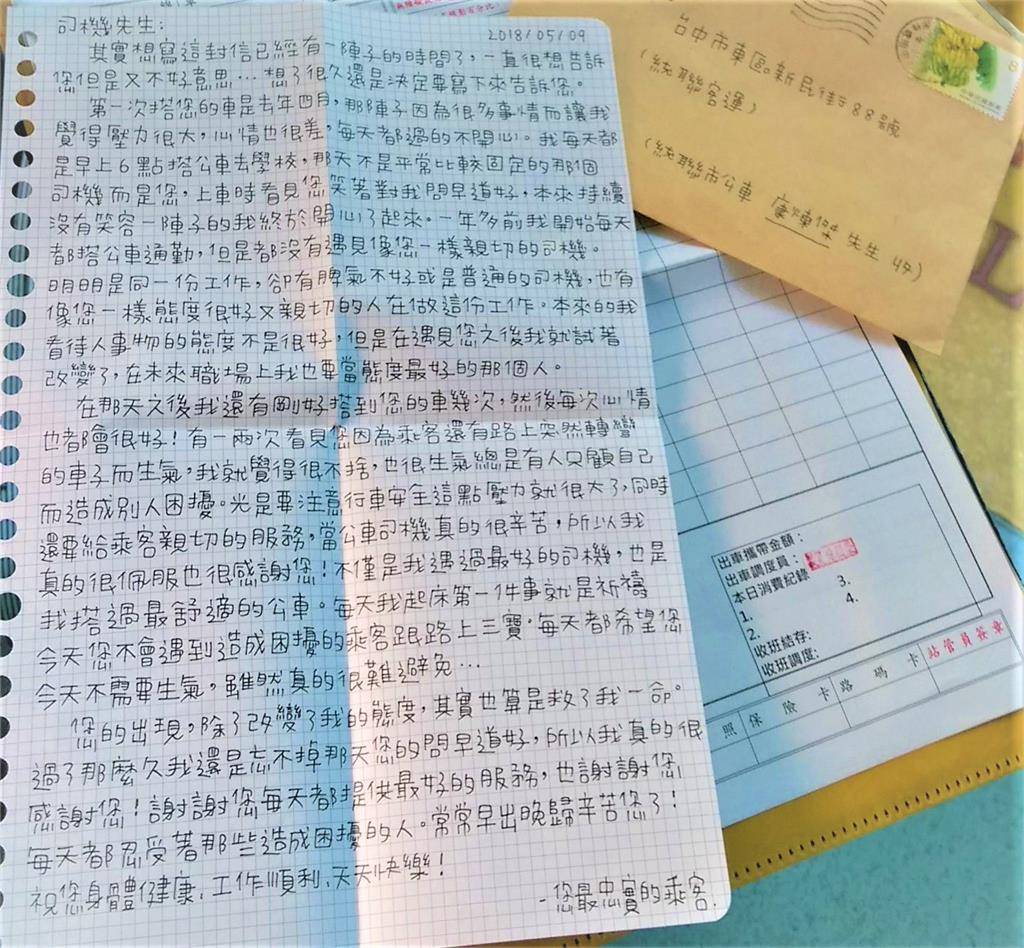 司機先生:
2018/05/09
其實想寫這封信已經有一陣子的時間了，一直很想告訴
您但是又不好意思…想了很久還是決定要寫下來告訴您。
第一次搭您的車是去年四月，那陣子因為很多事情而讓我
覺得壓力很大，心情也很差，每天都過的不開心。我每天都
是早上6點搭公車去學校，那天不是平常比較固定的那個
司機而是您，上車時看見您笑著對我問早道好，本來持續
沒有笑容一陣子的我終於開心了起來。一年多前我開始每天
都搭公車通勤，但是都沒有遇見像您一樣親切的司機。
明明是同一份工作，卻有脾氣不好或是普通的司機，也有
像您一樣態度很好又親切的人在做這份工作。本來的我
看待人事物的態度不是很好，但是在遇見您之後我就試著
改變了，在未來職場上我也要當態度最好的那個人。
在那天之後我還有剛好搭到您的車幾次，然後每次心情
也都會很好！有一兩次看見您因為乘客還有路上突然轉彎
的車子而生氣，我就覺得很不捨，也很生氣總是有人只顧自己
而造成別人困擾。光是要注意行車安全這點壓力就很大了，同時
還要給乘客親切的服務，當公車司機真的很辛苦，所以我
真的很佩服也很感謝您！不僅是我遇過最好的司機，也是
我搭過最舒適的公車。每天我起床第一件事就是祈禱
今天您不會遇到造成困擾的乘客跟路上三寶。每天都希望您
今天不需要生氣，雖然真的很難避免…
您的出現，除了改變了我的態度，其實也算是救了我一命。
過了那麼久我還是忘不掉那天您的問早道好，所以我真的很
感謝您！謝謝您每天都提供最好的服務，也謝謝您
每天都忍受著那些造成困擾的人。常常早出晚歸辛苦您了！
祝您身體健康、工作順利、天天快樂！
-您最忠實的乘客.
台中市東區新民街88號
(統聯客運)
(統聯市公車 康煉傑 先生 收)
8
出車攜帶金額：
出車調度員：
本日消費紀錄
1.
2.
3.
4.
收班結存:
收班調度:
站管員簽章
照 保 險 卡 路 碼 卡